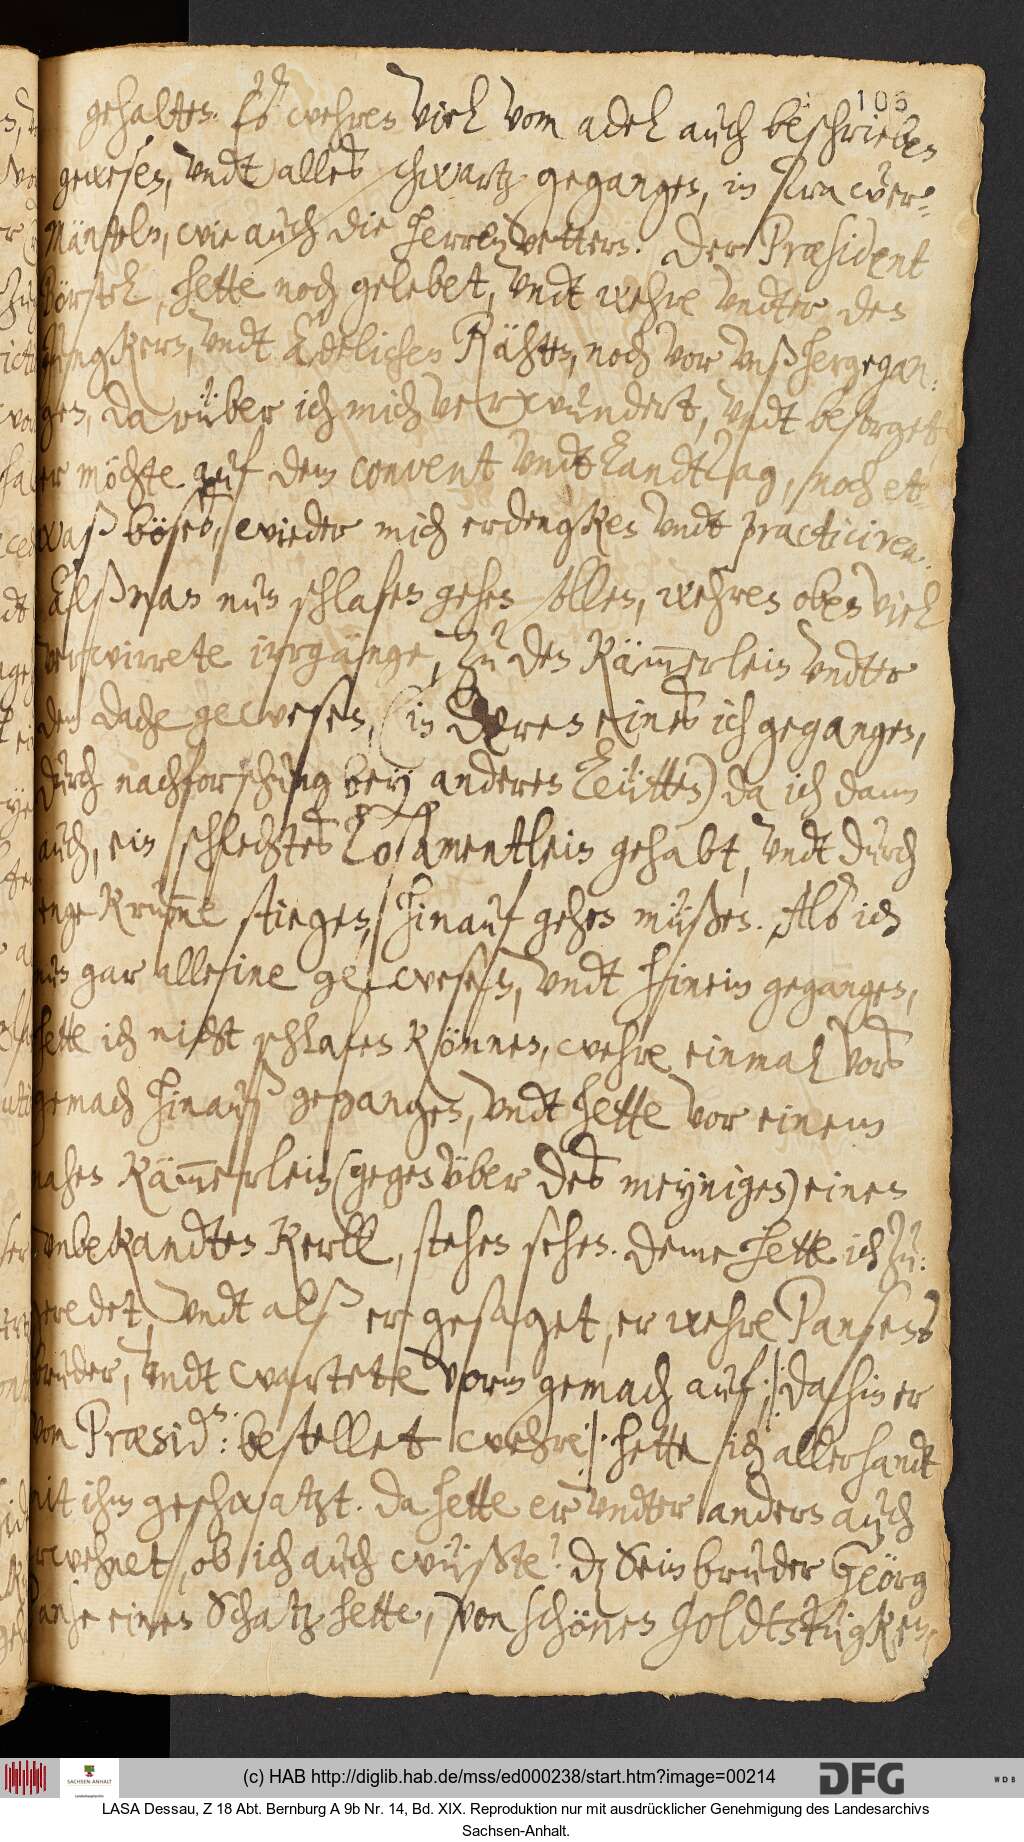 105
gehalten. Es wehren viel vom adel auch beschrieben
gewesen, vndt alles schwartz gegangen, in
Mänteln, wie auch die herren vettern. Der Præsident
Börstel, hette noch gelebet, vndt wehre vndter den
Jungkern, vndt Edelichen Rähten, noch vor vnß hergegan-
gen, darüber ich mich verwundert, vndt besorget
er möchte auf dem convent vndt Landtag, noch et-
waß böses, wieder mich erdengken vndt practiciren.
Alß man nun schlafen gehen sollen, wehren oben viel
verwirrete irrgänge, zu den Kämmerlein vndter
dem dache gewesen, (in deren eines ich gegangen,
durch nachforschung bey anderen Leütten) da ich dann
auch, ein schlechtes Losamentlein gehabt, vndt durch
enge krumme stiegen, hinauf gehen müßen. Als ich
nun gar alleine gewesen, vndt hinein gegangen,
hette ich nicht schlafen können, wehre einmal vors
gemach hinauß gegangen, vndt hette vor einem
nahen Kämmerlein (gegen über des meynigen) einen
vnbekandten Kerll, stehen sehen. Deme hette ich zu-
geredet, vndt alß er gesaget, er wehre Pansens
bruder, vndt wartete vorm gemach auf; /: dahin er
vom Præsid: bestellet wehre :/ hette ich allerhandt
mit ihm geschwatzt. Da hette er vndter andern auch
erwehnet, ob ich auch wüßte? dz Sein bruder Geörg
Panse einen Schatz hette, von schönen Goldtstügken
(c) HAB http://diglib.hab.de/mss/ed000238/start.htm?image=00214
SACHSEN-ANHALT
DFG
WDB
LASA Dessau, Z 18 Abt. Bernburg A 9b Nr. 14, Bd. XIX. Reproduktion nur mit ausdrücklicher Genehmigung des Landesarchivs
Sachsen-Anhalt.